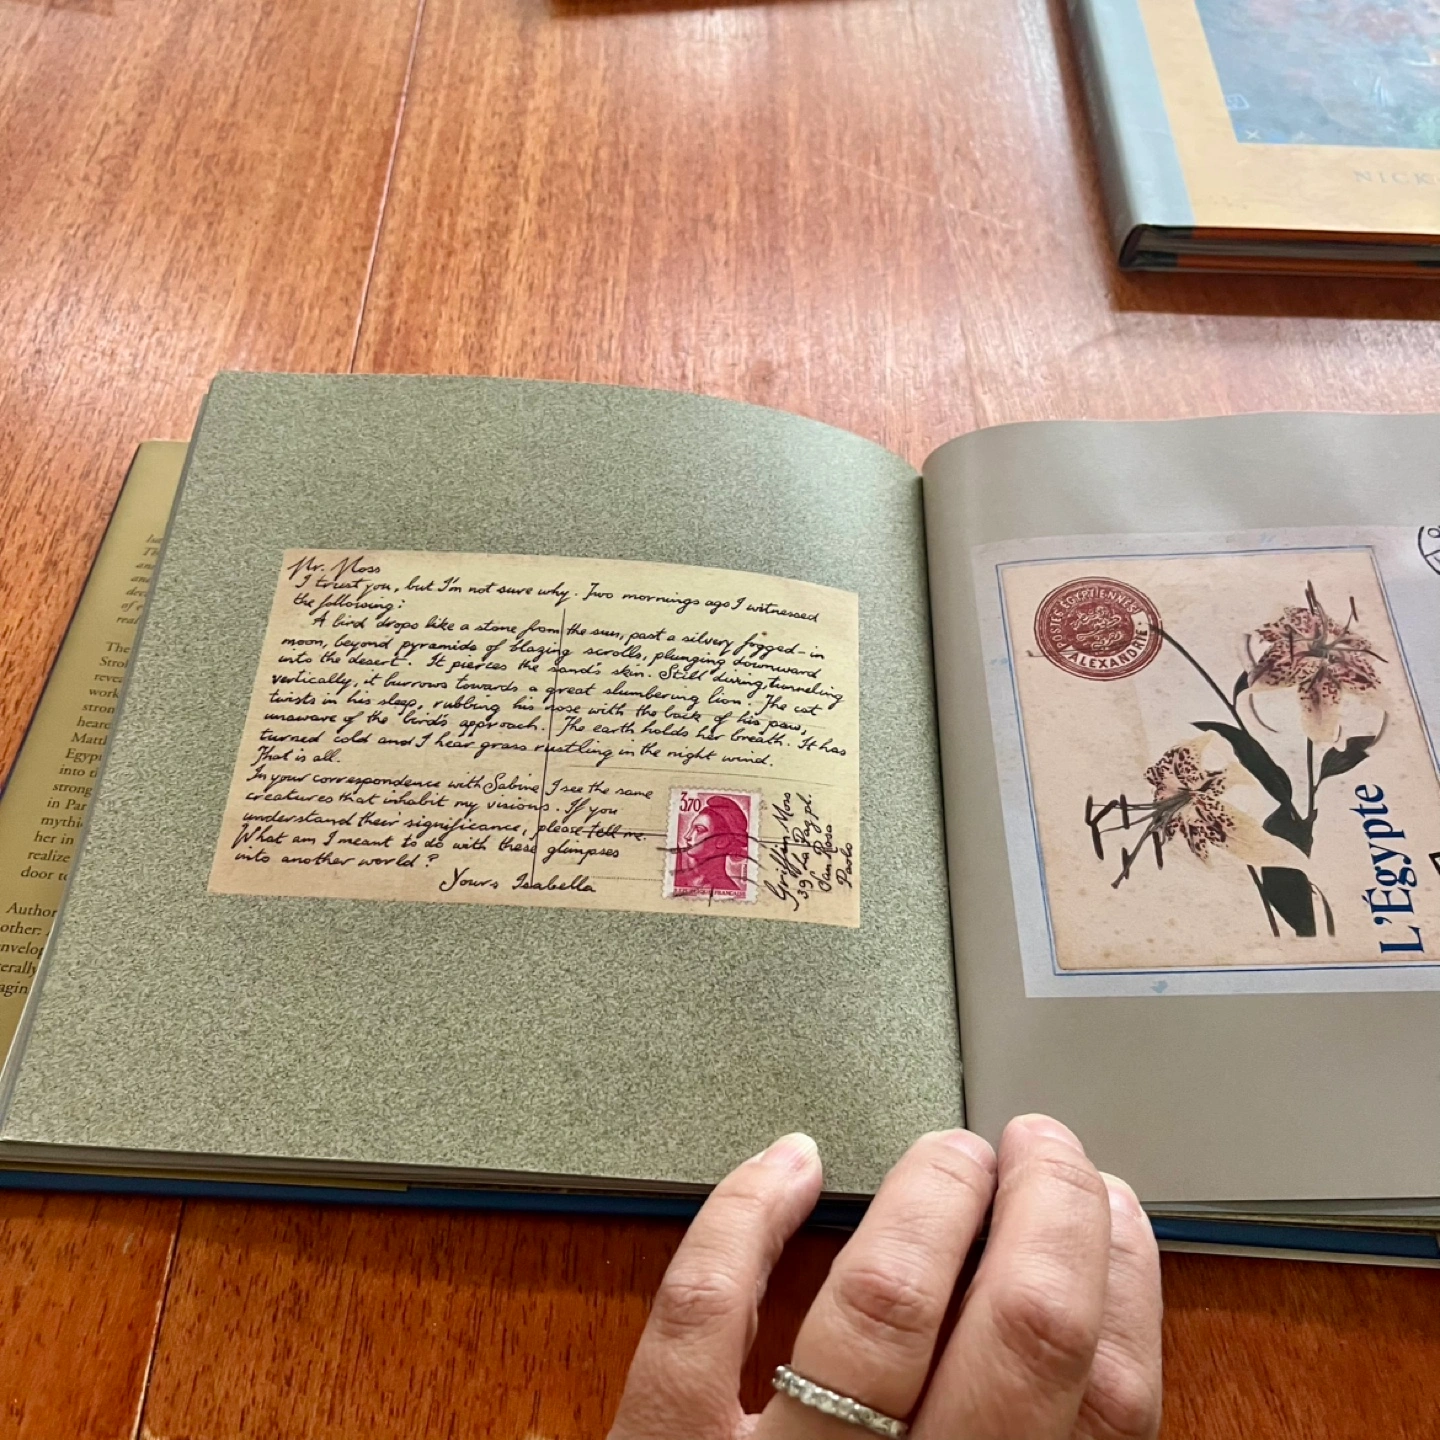 Mr. Moss
I trust you, but I'm not sure why. Two mornings ago I witnessed
the following:
A bird drops like a stone from the sun, past a silvery fogged-in
moon, beyond pyramids of blazing scrolls, plunging downward
into the desert. It pierces the sand's skin. Still diving, tunneling
vertically, it burrows towards a great slumbering lion. The cat
twists in his sleep, rubbing his nose with the back of his paw,
unaware of the bird's approach. The earth holds her breath. It has
turned cold and I hear grass rustling in the night wind.
That is all.
In your correspondence with Sabine I see the same
creatures that inhabit my visions. If you
understand their significance, please tell me.
What am I meant to do with these glimpses
into another world?
Yours Isabella
3,70
Griffin Moss
39 La Paz pl.
San Rosa
Paolo
POSTES ÉGYPTIENNES
ALEXANDRIE
L'Égypte
NICK
The
Stro
revea
work
stron
heard
Matt
Egyp
into th
strong
in Par
mythi
her in
realize
door to
Author
other:
envelop
erally
agin